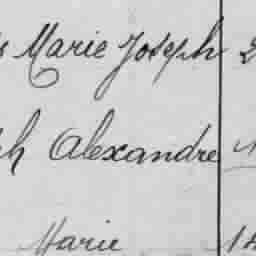 s Marie Joseph 2
ph Alexandre
Marie 18